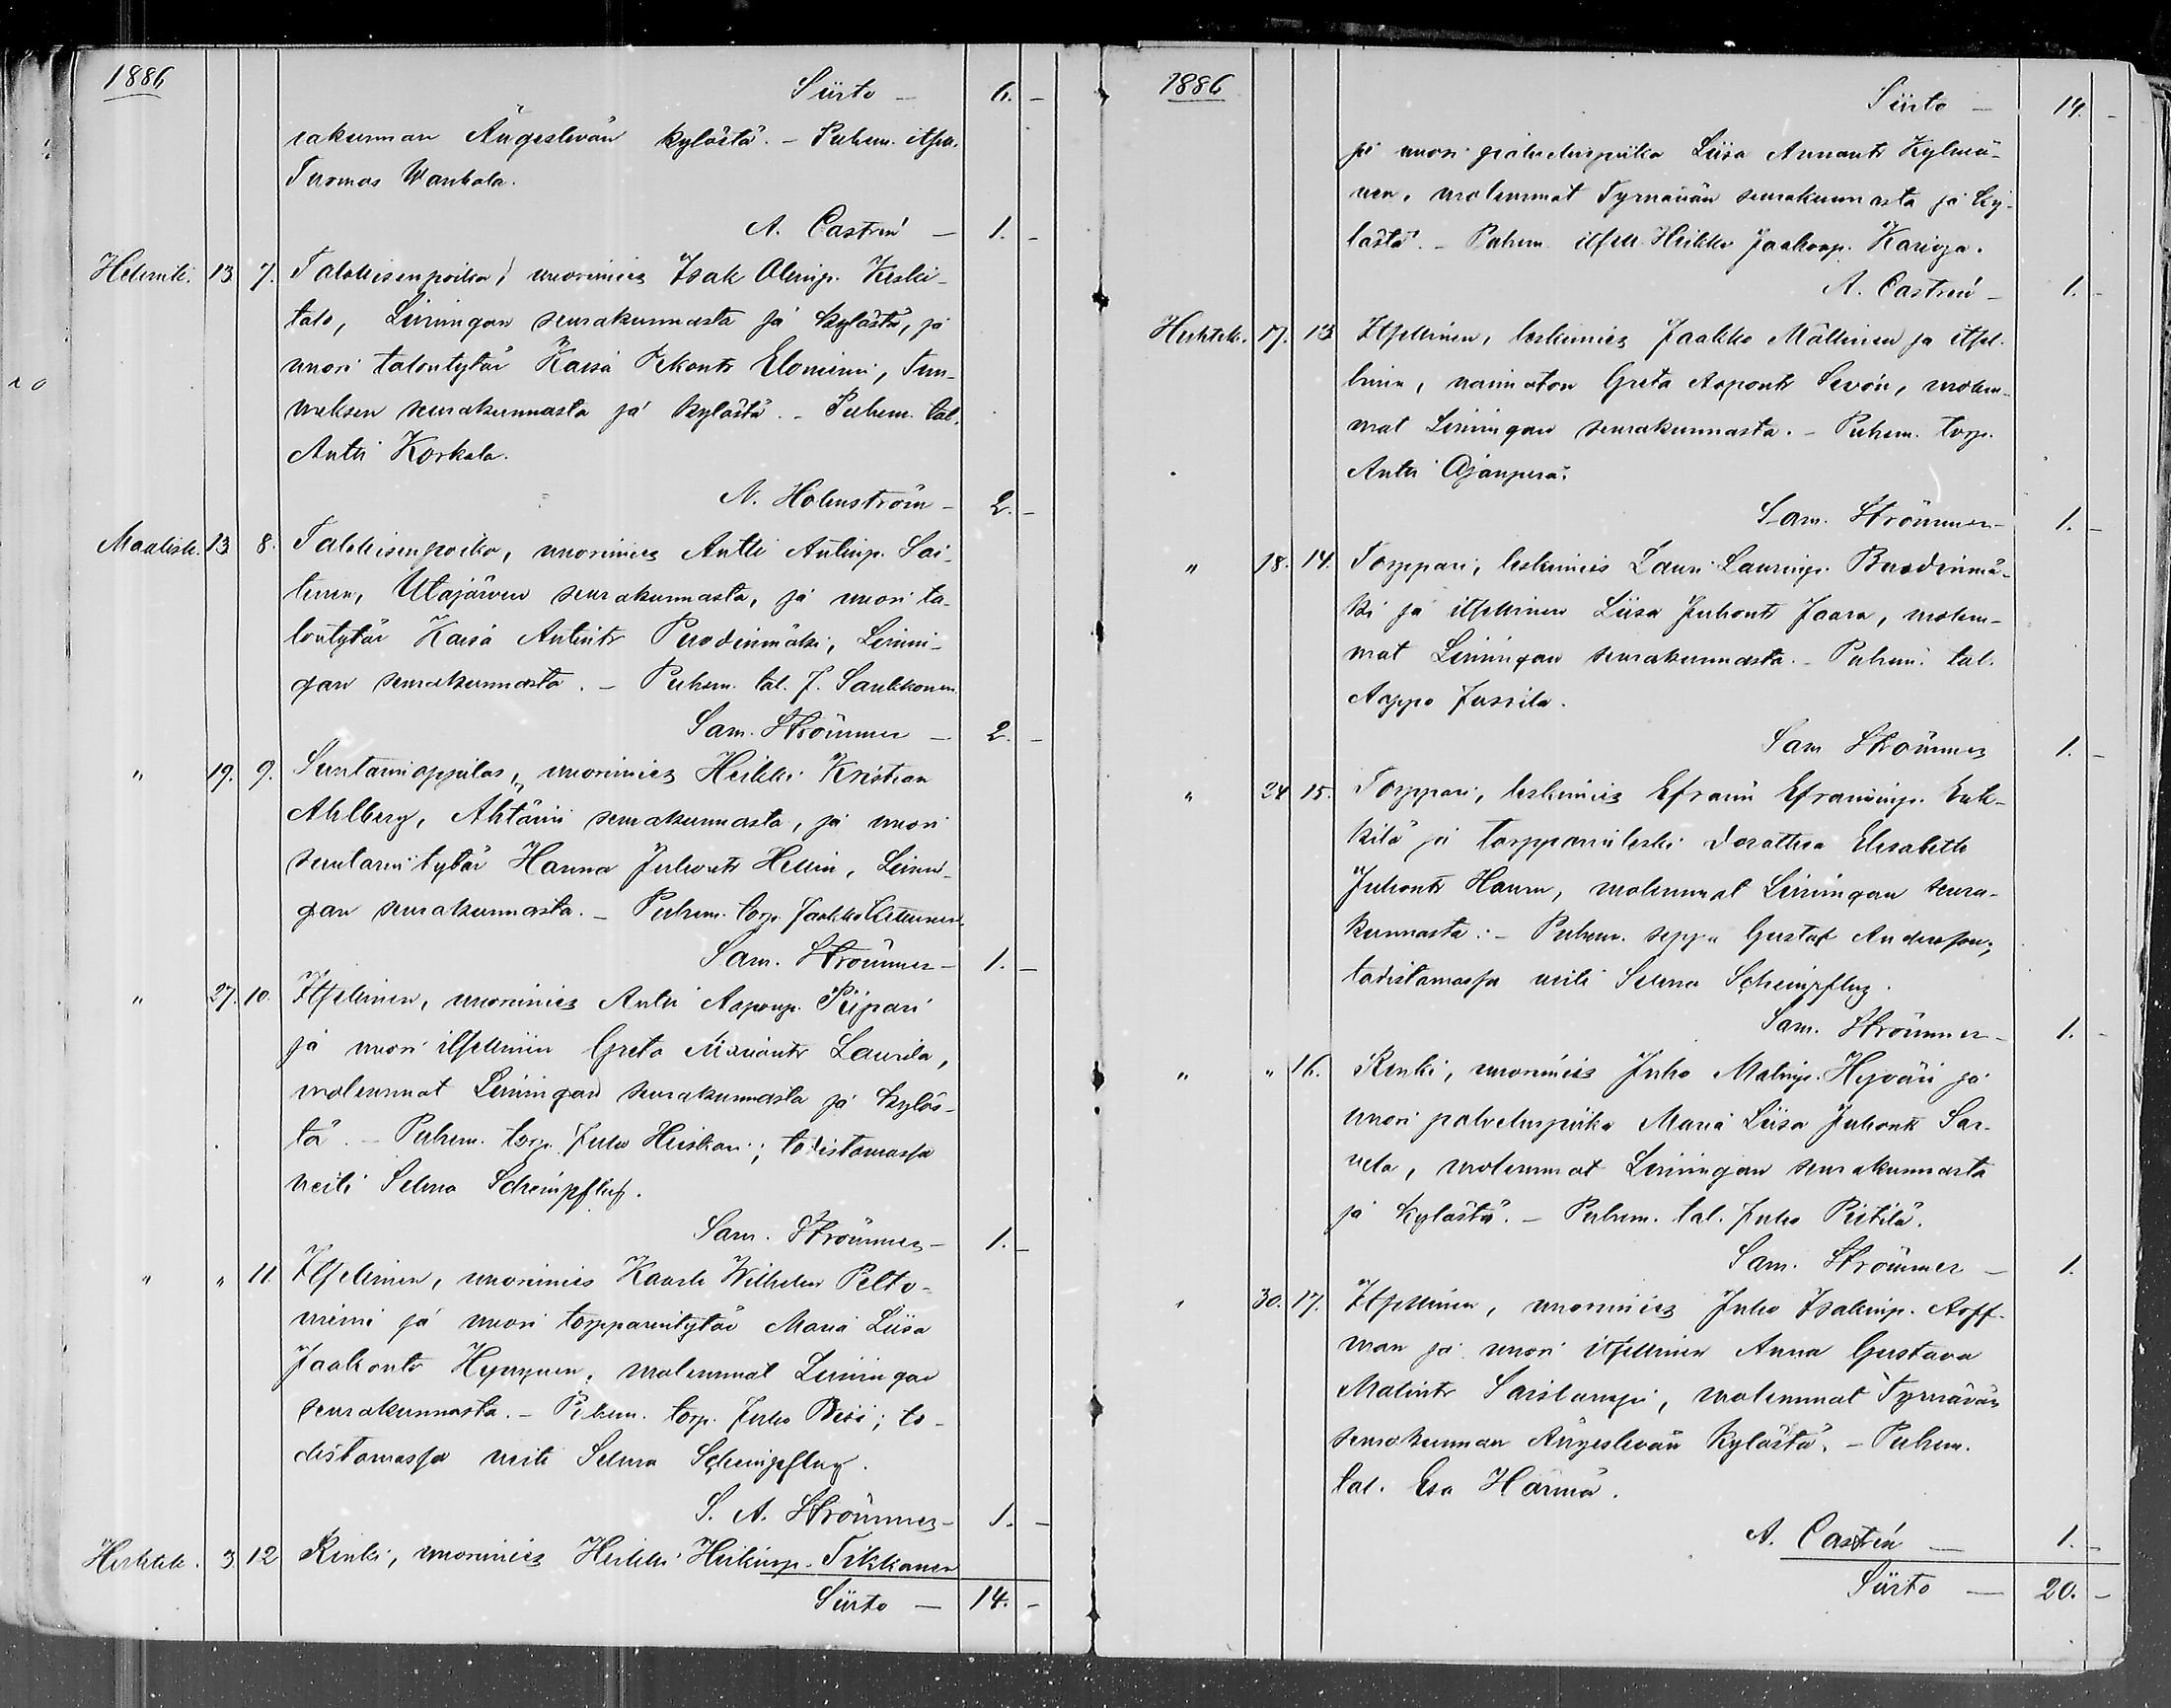 1886
Siirto — 6. —
rakunnan Ängeslevän kylästä. — Puhem. itsm.
Tuomas Wanhala.
A. Castrén — 1. —
Helmik. 13. 7. Talollisenpoika, nuorimies Isak Olinp. Keski-
talo, Limingan seurakunnasta ja kylästä, ja
nuori talontytär Kaisa Pekantr Eloniemi, Tem-
meksen seurakunnasta ja kylästä. — Puhem. tal.
Antti Korkala.
N. Holmström — 2. —
Maalisk. 13. 8. Talollisenpoika, nuorimies Antti Antinp. Lai-
tinen, Utajärven seurakunnasta, ja nuori ta-
lontytär Kaisa Antintr Puodinmäki, Limin-
gan seurakunnasta. — Puhem. tal. J. Saukkonen.
Sam. Strömmer — 2. —
" 19. 9. Suntarioppilas, nuorimies Heikki Kristian
Ahlberg, Ahtärin seurakunnasta, ja nuori
suntarintytär Hanna Juhontr Hellin, Limin-
gan seurakunnasta. — Puhem. torp. Jaakko
Sam. Strömmer — 1. —
" 27. 10. Itsellinen, nuorimies Antti Aaponp. Piipari
ja nuori itsellinen Greta Mariantr Laurila,
molemmat Limingan seurakunnasta ja kyläs-
tä. — Puhem. torp. Juho Heiskari; todistamassa
neiti Selma Scheinpflug.
Sam. Strömmer — 1. —
" " 11. Itsellinen, nuorimies Kaarle Wilhelm Pelto-
niemi ja nuori torpparintytär Maria Liisa
Jaakontr Hynynen, molemmat Limingan
seurakunnasta. — Puhem. torp. Juho Piisi; to-
distamassa neiti Selma Scheinpflug.
S. A. Strömmer — 1. —
Huhtik. 3. 12. Renki, nuorimies Heikki Heikinp. Tikkanen
Siirto — 14. —
1886
Siirto — 14. —
ja nuori palveluspiika Liisa Annantr Kylmä-
nen, molemmat Tyrnävän seurakunnasta ja ky-
lästä. — Puhem. itsell. Heikki Jaakonp. Karioja.
A. Castrén — 1. —
Huhtik. 17. 13. Itsellinen, leskimies Jaakko Mällinen ja itsel-
linen, naimaton Greta Aapontr Sevón, molem-
mat Limingan seurakunnasta. — Puhem. torp.
Antti Ojanperä.
Sam. Strömmer — 1. —
" 18. 14. Torppari, leskimies Lauri Laurinp. Puodinmä-
ki ja itsellinen Liisa Juhontr Jaara, molem-
mat Limingan seurakunnasta. — Puhem. tal.
Aappo Jussila.
Sam Strömmer 1. —
" 24. 15. Torppari, leskimies Efraim Efraiminp. Erk-
kilä ja torpparinleski Dorathea Elisabeth
Juhontr Hanm, molemmat Limingan seura-
kunnasta. — Puhem. seppä Gustaf Andersson;
todistamassa neiti Selma Scheinpflug.
Sam. Strömmer — 1. —
" " 16. Renki, nuorimies Juho Matinp. Hyväri ja
nuori palveluspiika Maria Liisa Juhontr Sar-
vela, molemmat Limingan seurakunnasta
ja kylästä. — Puhem. tal. Juho Pietilä.
Sam. Strömmer — 1.
" 30. 17. Itsellinen, nuorimies Juho Isakinp. Aoff-
man ja nuori itsellinen Anna Gustava
Matintr Saislampi, molemmat Tyrnävän
seurakunnan Ängeslevän kylästä. — Puhem.
tal. Esa Härmä.
A. Castrén — 1. —
Siirto — 20. —